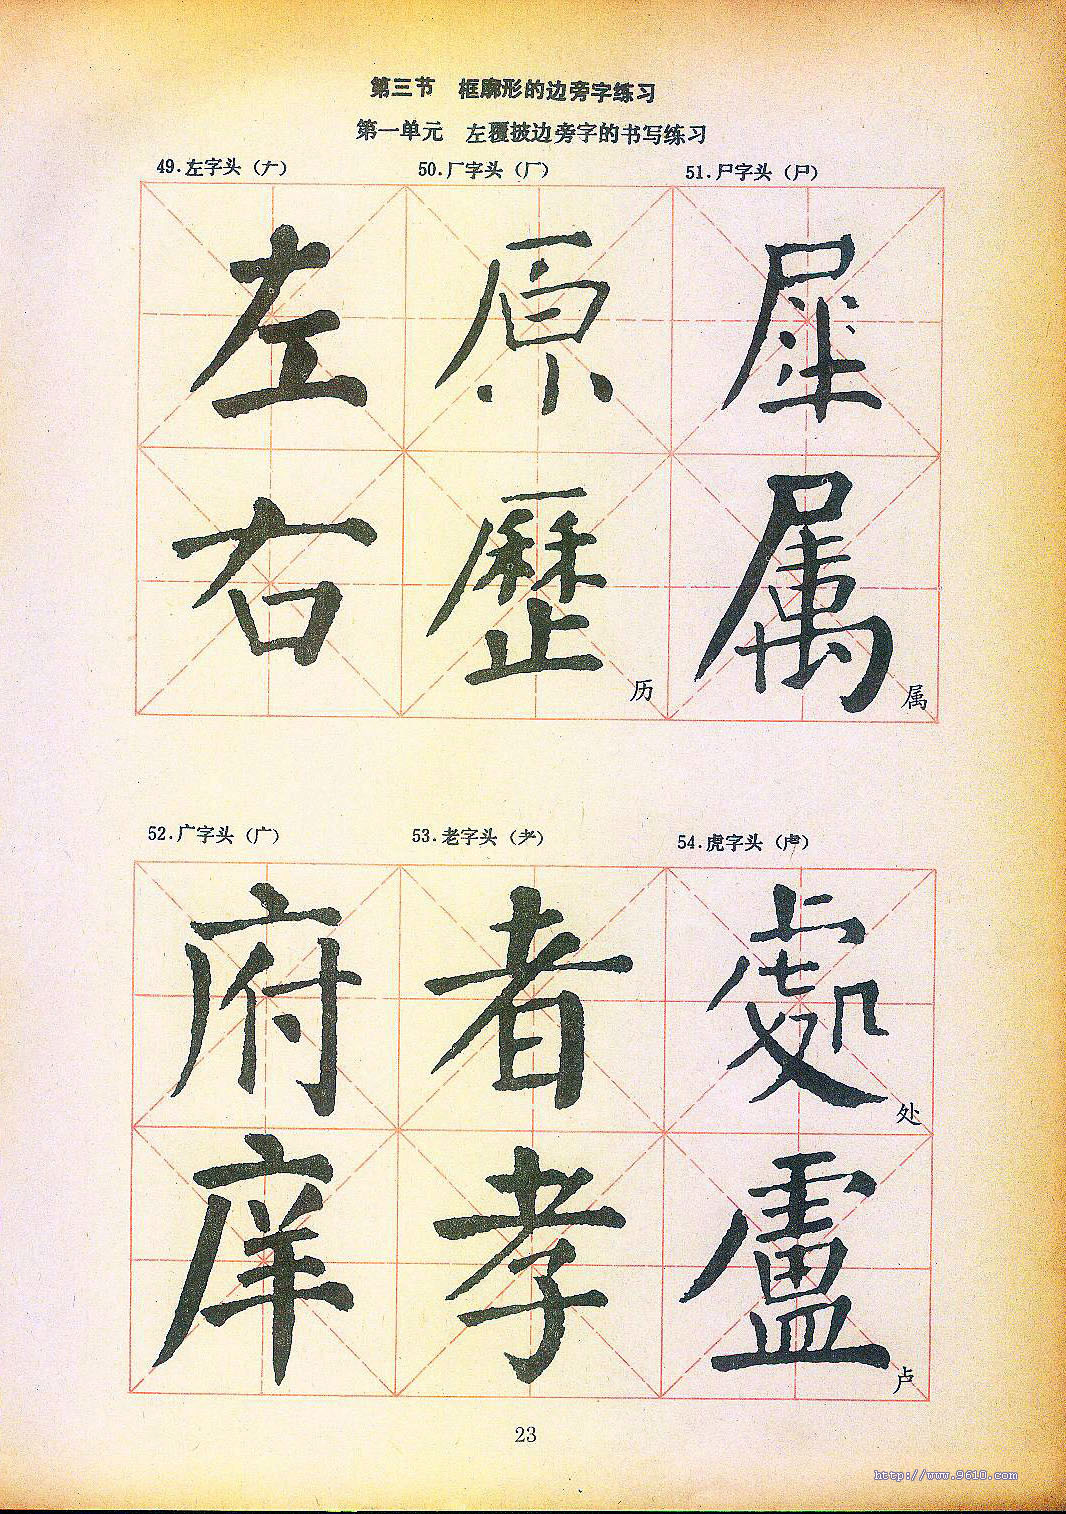 第三节 框廓形的边旁字练习
第一单元 左覆披边旁字的书写练习
49.左字头（𠂇） 50.厂字头（厂） 51.尸字头（尸）
左 原 犀
右 歷 历 属 属
52.广字头（广） 53.老字头（耂） 54.虎字头（虍）
府 者 處 处
庠 孝 盧 卢
23
http://www.9610.com